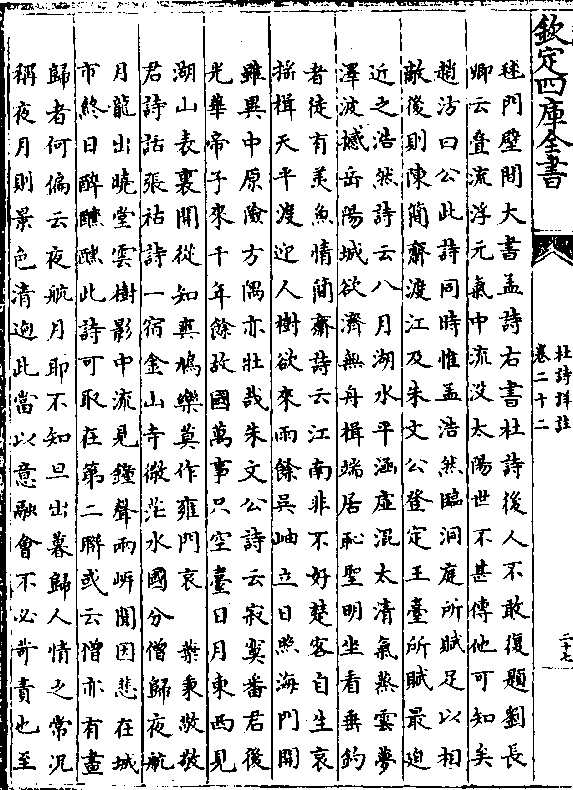 欽定四庫全書
杜詩詳註
卷二十二
二十七
毬門壁間大書孟詩右書杜詩後人不敢復題劉長
卿云疊浪浮元氣中流沒太陽世不甚傳他可知矣
趙汸曰公此詩同時惟孟浩然臨洞庭所賦足以相
敵後則陳簡齋渡江及朱文公登定王臺所賦最迫
近之浩然詩云八月湖水平涵虛混太清氣蒸雲夢
澤波撼岳陽城欲濟無舟楫端居恥聖明坐看垂釣
者徒有羡魚情簡齋詩云江南非不好楚客自生哀
搖楫天平渡迎人樹欲來雨餘吳岫立日照海門開
雖異中原險方隅亦壯哉朱文公詩云寂寞番君後
光華帝子來千年餘故國萬事只空臺日月東西見
湖山表裏開從知爽鳩樂莫作雍門哀 葉秉敬敬
君詩話張祜詩一宿金山寺微茫水國分僧歸夜航
月龍出曉堂雲樹影中流見鐘聲兩岍聞因悲在城
市終日醉醺醺此詩可取在第二聯或云僧亦有晝
歸者何偏云夜航月耶不知旦出暮歸人情之常況
稱夜月則景色清迥此當以意融會不必苛責也至